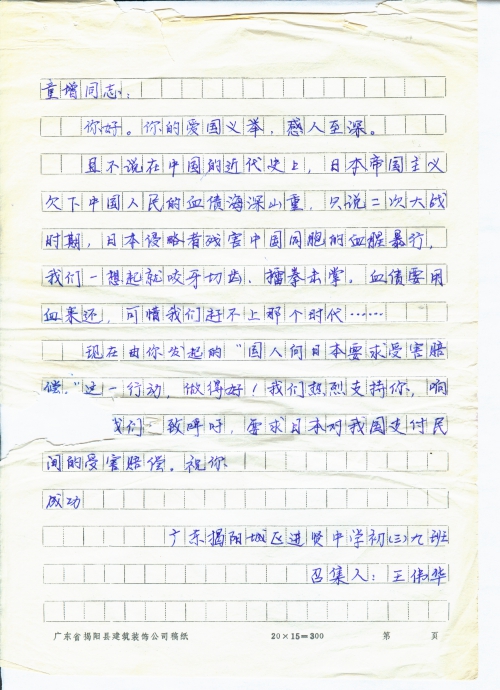 童增同志：
你好。你的爱国义举，感人至深。
且不说在中国的近代史上，日本帝国主义
欠下中国人民的血债海深山重，只说二次大战
时期，日本侵略者残害中国同胞的血腥暴行，
我们一想起就咬牙切齿、擂拳击掌。血债要用
血来还，可惜我们赶不上那个时代……
现在由你发起的“国人向日本要求受害赔
偿。”这一行动，做得好！我们热烈支持你，响
我们一致呼吁，要求日本对我国支付民
间的受害赔偿。祝你
成功
广东揭阳城区进贤中学初(三)九班
召集人：王伟华
广东省揭阳县建筑装饰公司稿纸 20×15=300 第 页